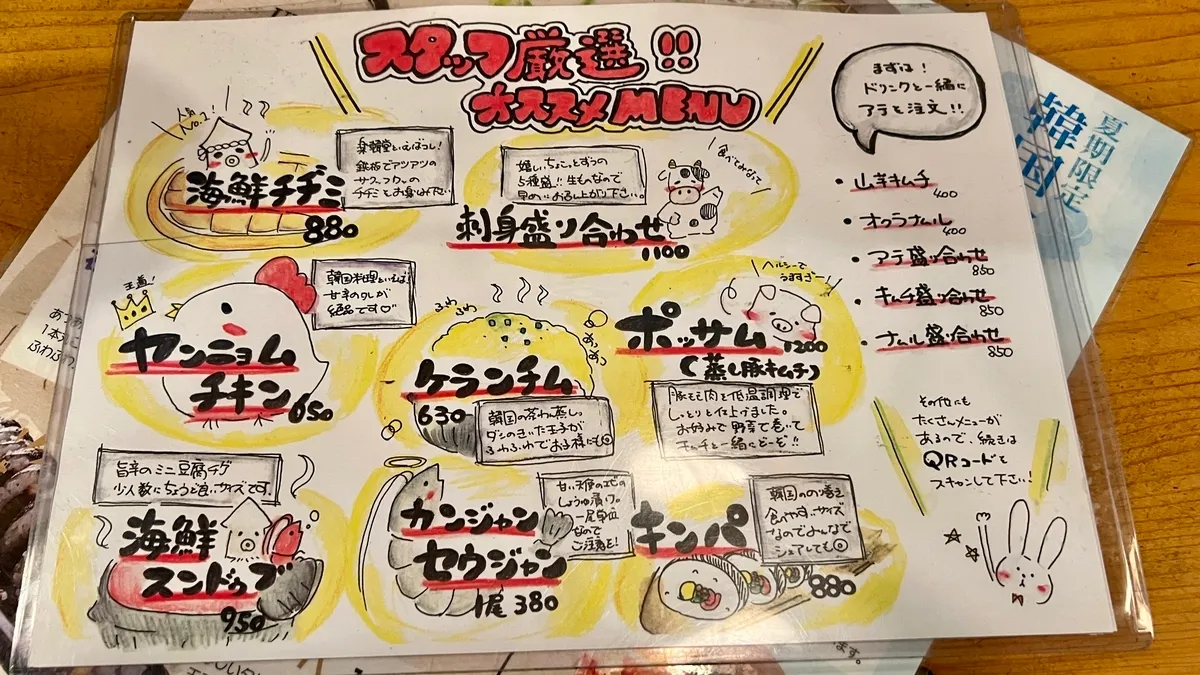 スタッフ厳選!!
オススメMENU
まずは!
ドリンクと一緒に
アテを注文!!
人気
No.1
海鮮チヂミ
880
といえばコレ!
鉄板でアツアツの
サクフワの
チヂミをお召み下さい
嬉しいちょこっとずつの
5種盛!!生ものなので
早めにお召し上がり下さい。
食べてみなって
刺身盛り合わせ
1100
・山芋キムチ
400
・オクラナムル
400
・アテ盛り合わせ
850
・キムチ盛り合わせ
850
・ナムル盛り合わせ
850
王道!
韓国料理といえば!
甘辛のタレが
絶品です♡
ヤンニョム
チキン
650
ふわふわ
ケランチム
630
韓国の茶わん蒸し。
ダシのきいた玉子が
ふわふわでお子様にも◎
ヘルシーで
うますぎー
ポッサム
1200
(蒸し豚キムチ)
豚モモ肉を低温調理で
しっとりと仕上げました。
お好みで野菜で巻いて
キムチと一緒にどーぞ!!
旨辛のミニ豆腐チゲ
少人数にちょうど良いサイズです。
海鮮
スンドゥブ
950
カンジャン
セウジャン
1尾 380
甘い天使のエビの
しょうゆ漬け。
一尾単位
なので
ご注意を!
キンパ
880
韓国ののり巻き
食べやすいサイズ
なのでみんなで
シェアしても◎
その他にも
たくさんメニューが
あるので、続きは
QRコードを
スキャンして下さい!
夏期限定
韓国
ます。